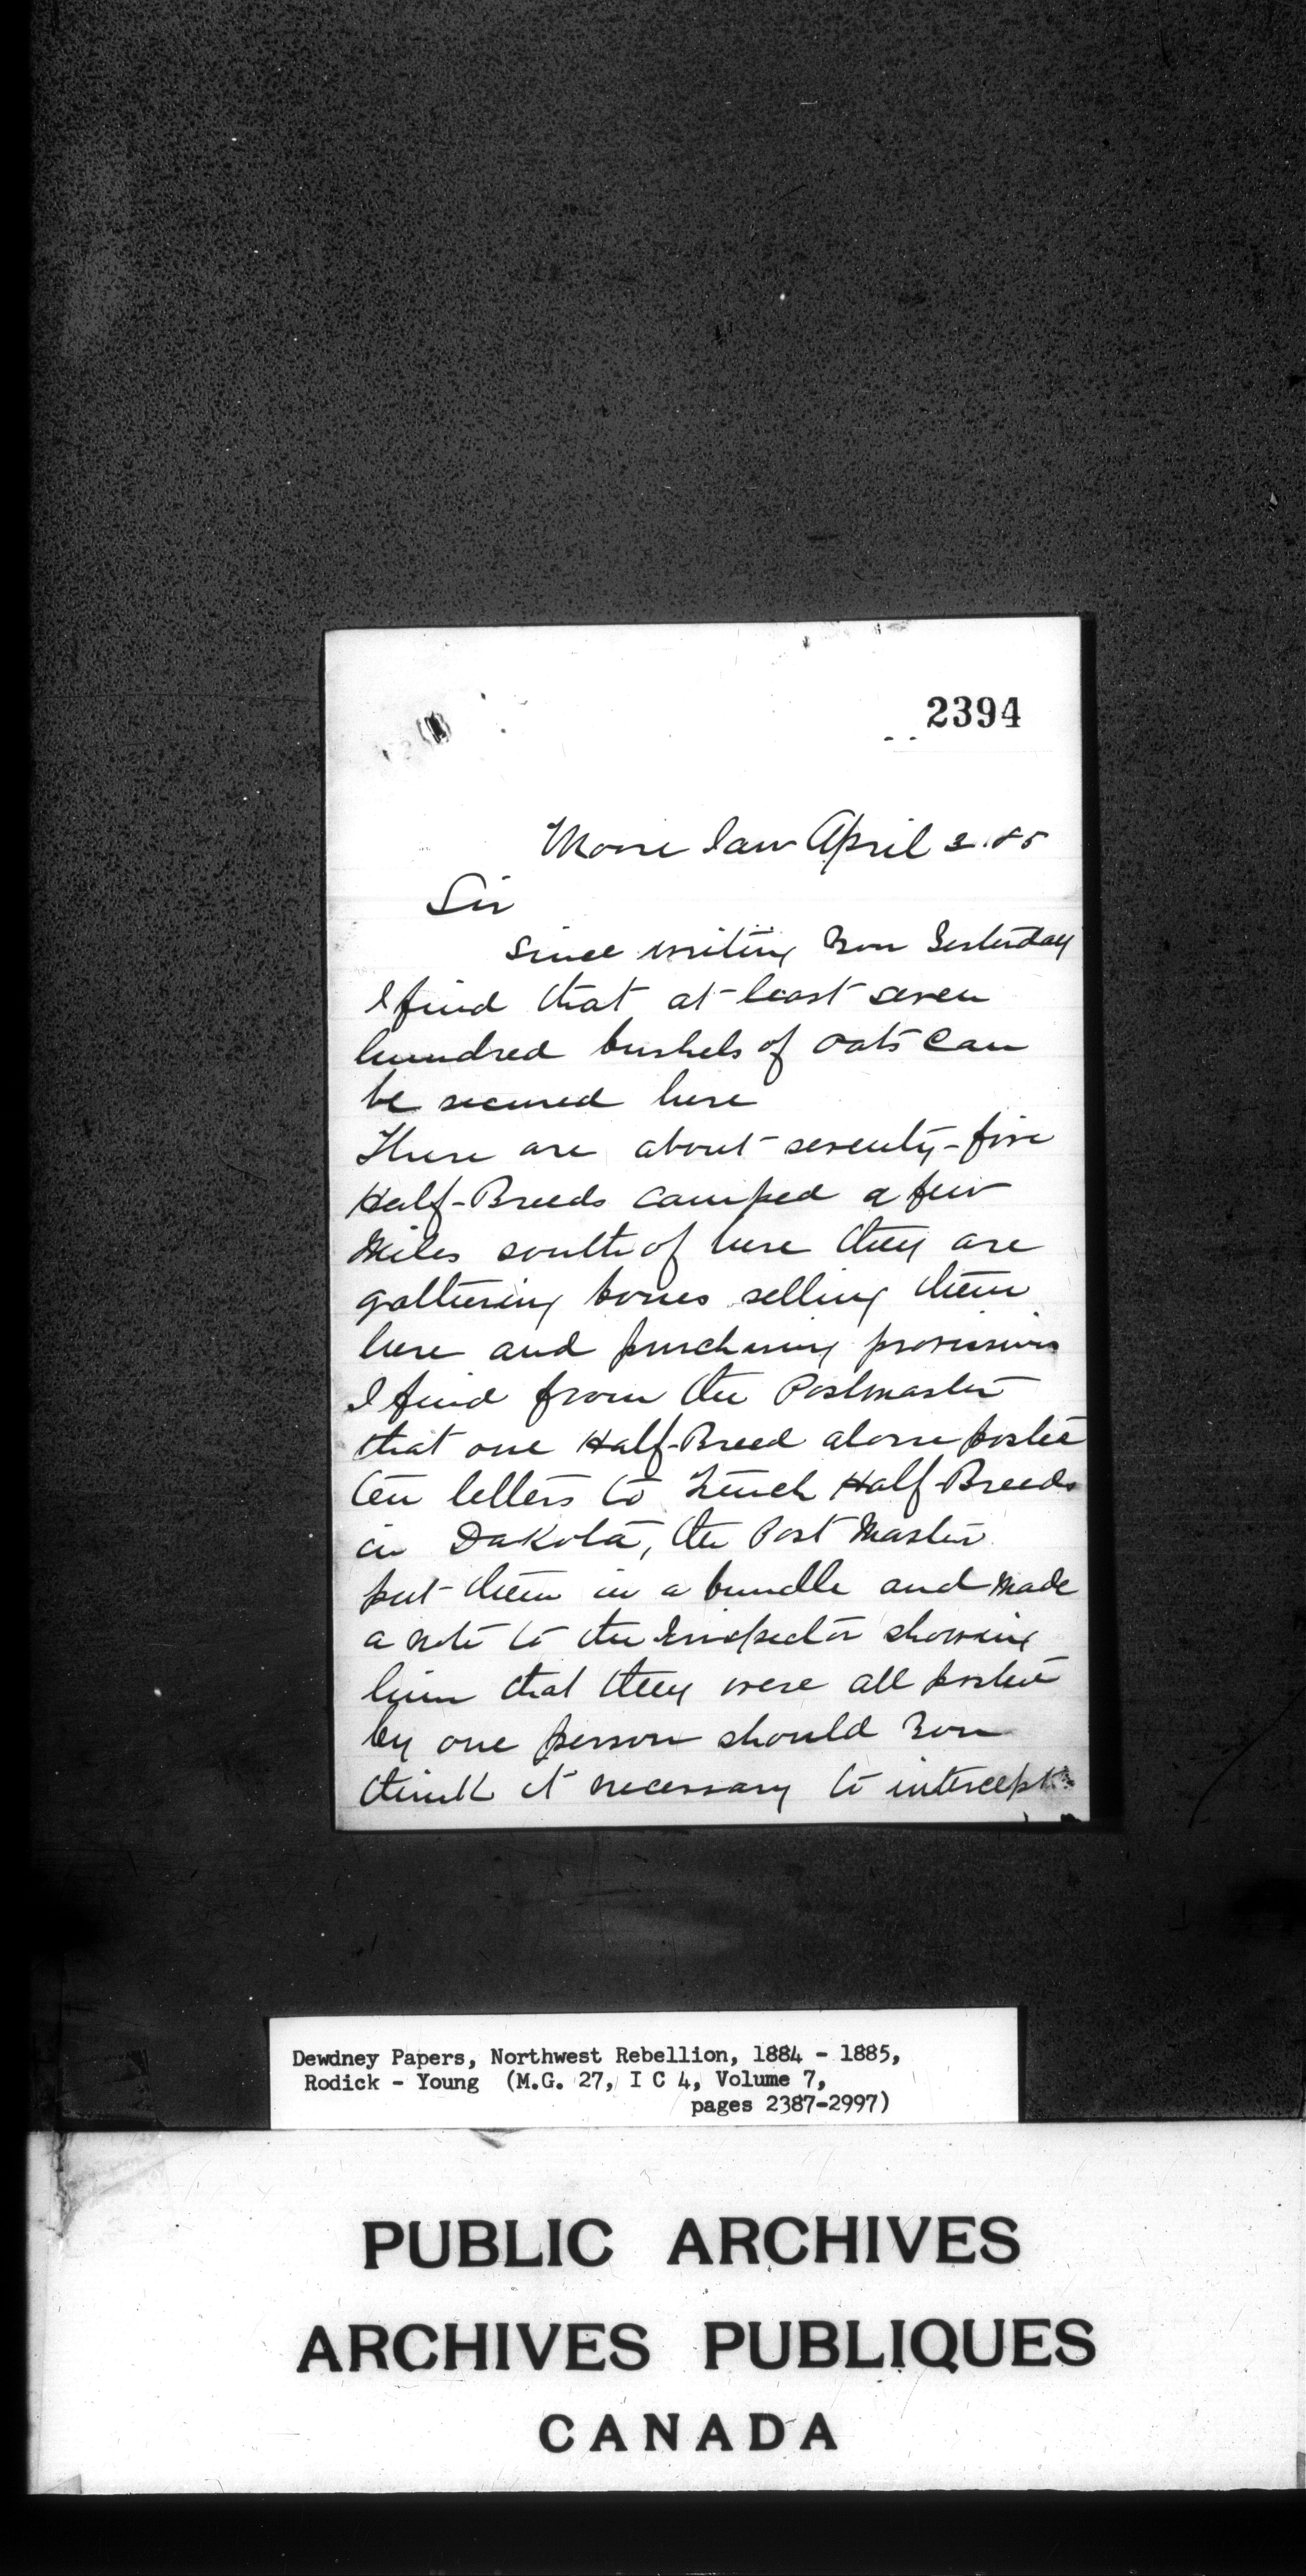 2394
Moose Jaw April 2. 85
Sir
Since writing You Yesterday
I find that at least seven
hundred bushels of oats can
be secured here
There are about seventy-five
Half-Breeds camped a few
Miles south of here they are
gathering bones selling them
here and purchasing provisions
I find from the Postmaster
that one Half-Breed alone posted
ten letters to French Half-Breeds
in Dakota, the Post Master
put them in a bundle and Made
a note to the Inspector showing
him that they were all posted
by one person should You
think it necessary to intercept
Dewdney Papers, Northwest Rebellion, 1884 - 1885,
Rodick - Young (M.G. 27, I C 4, Volume 7,
pages 2387-2997)
PUBLIC ARCHIVES
ARCHIVES PUBLIQUES
CANADA